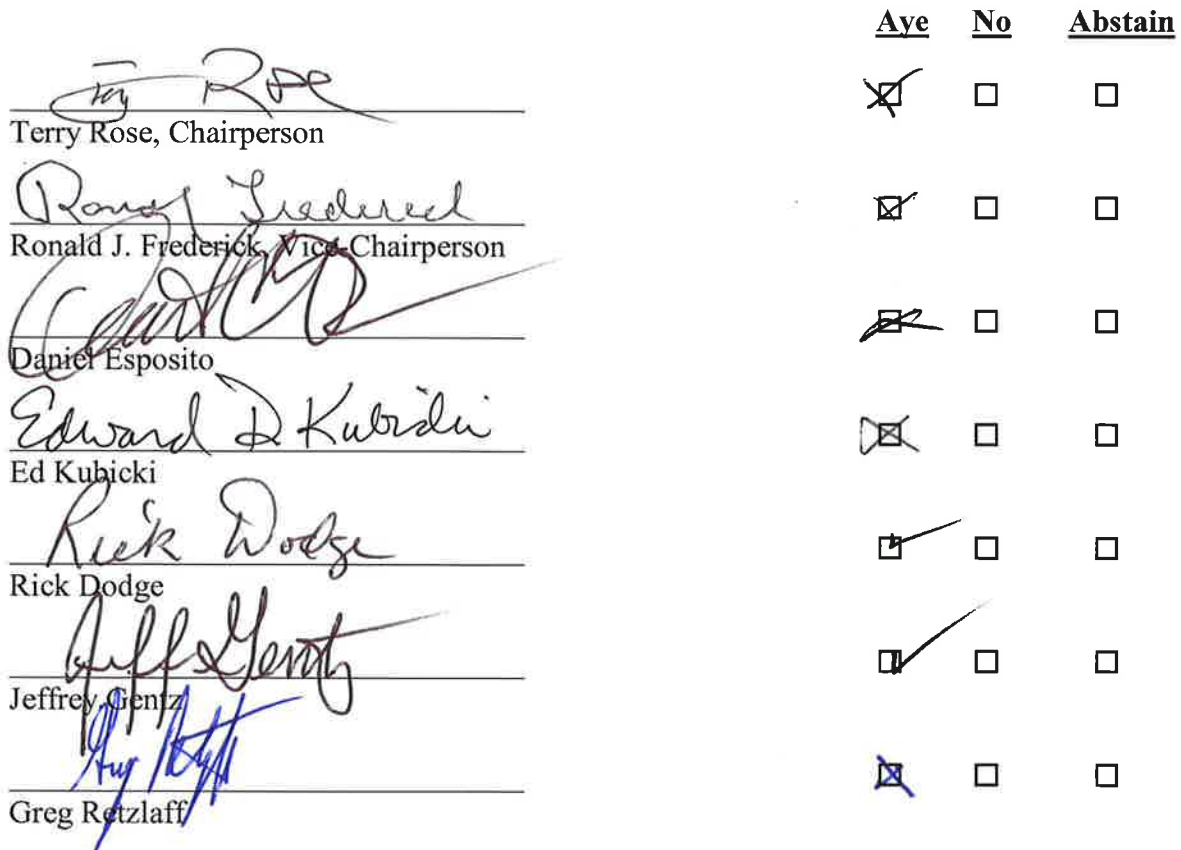 Aye No Abstain
Terry Rose
Terry Rose, Chairperson
Ronald Frederick
Ronald J. Frederick, Vice-Chairperson
Daniel Esposito
Edward D Kubicki
Ed Kubicki
Rick Dodge
Rick Dodge
Jeff Gentz
Jeffrey Gentz
Greg Retzlaff